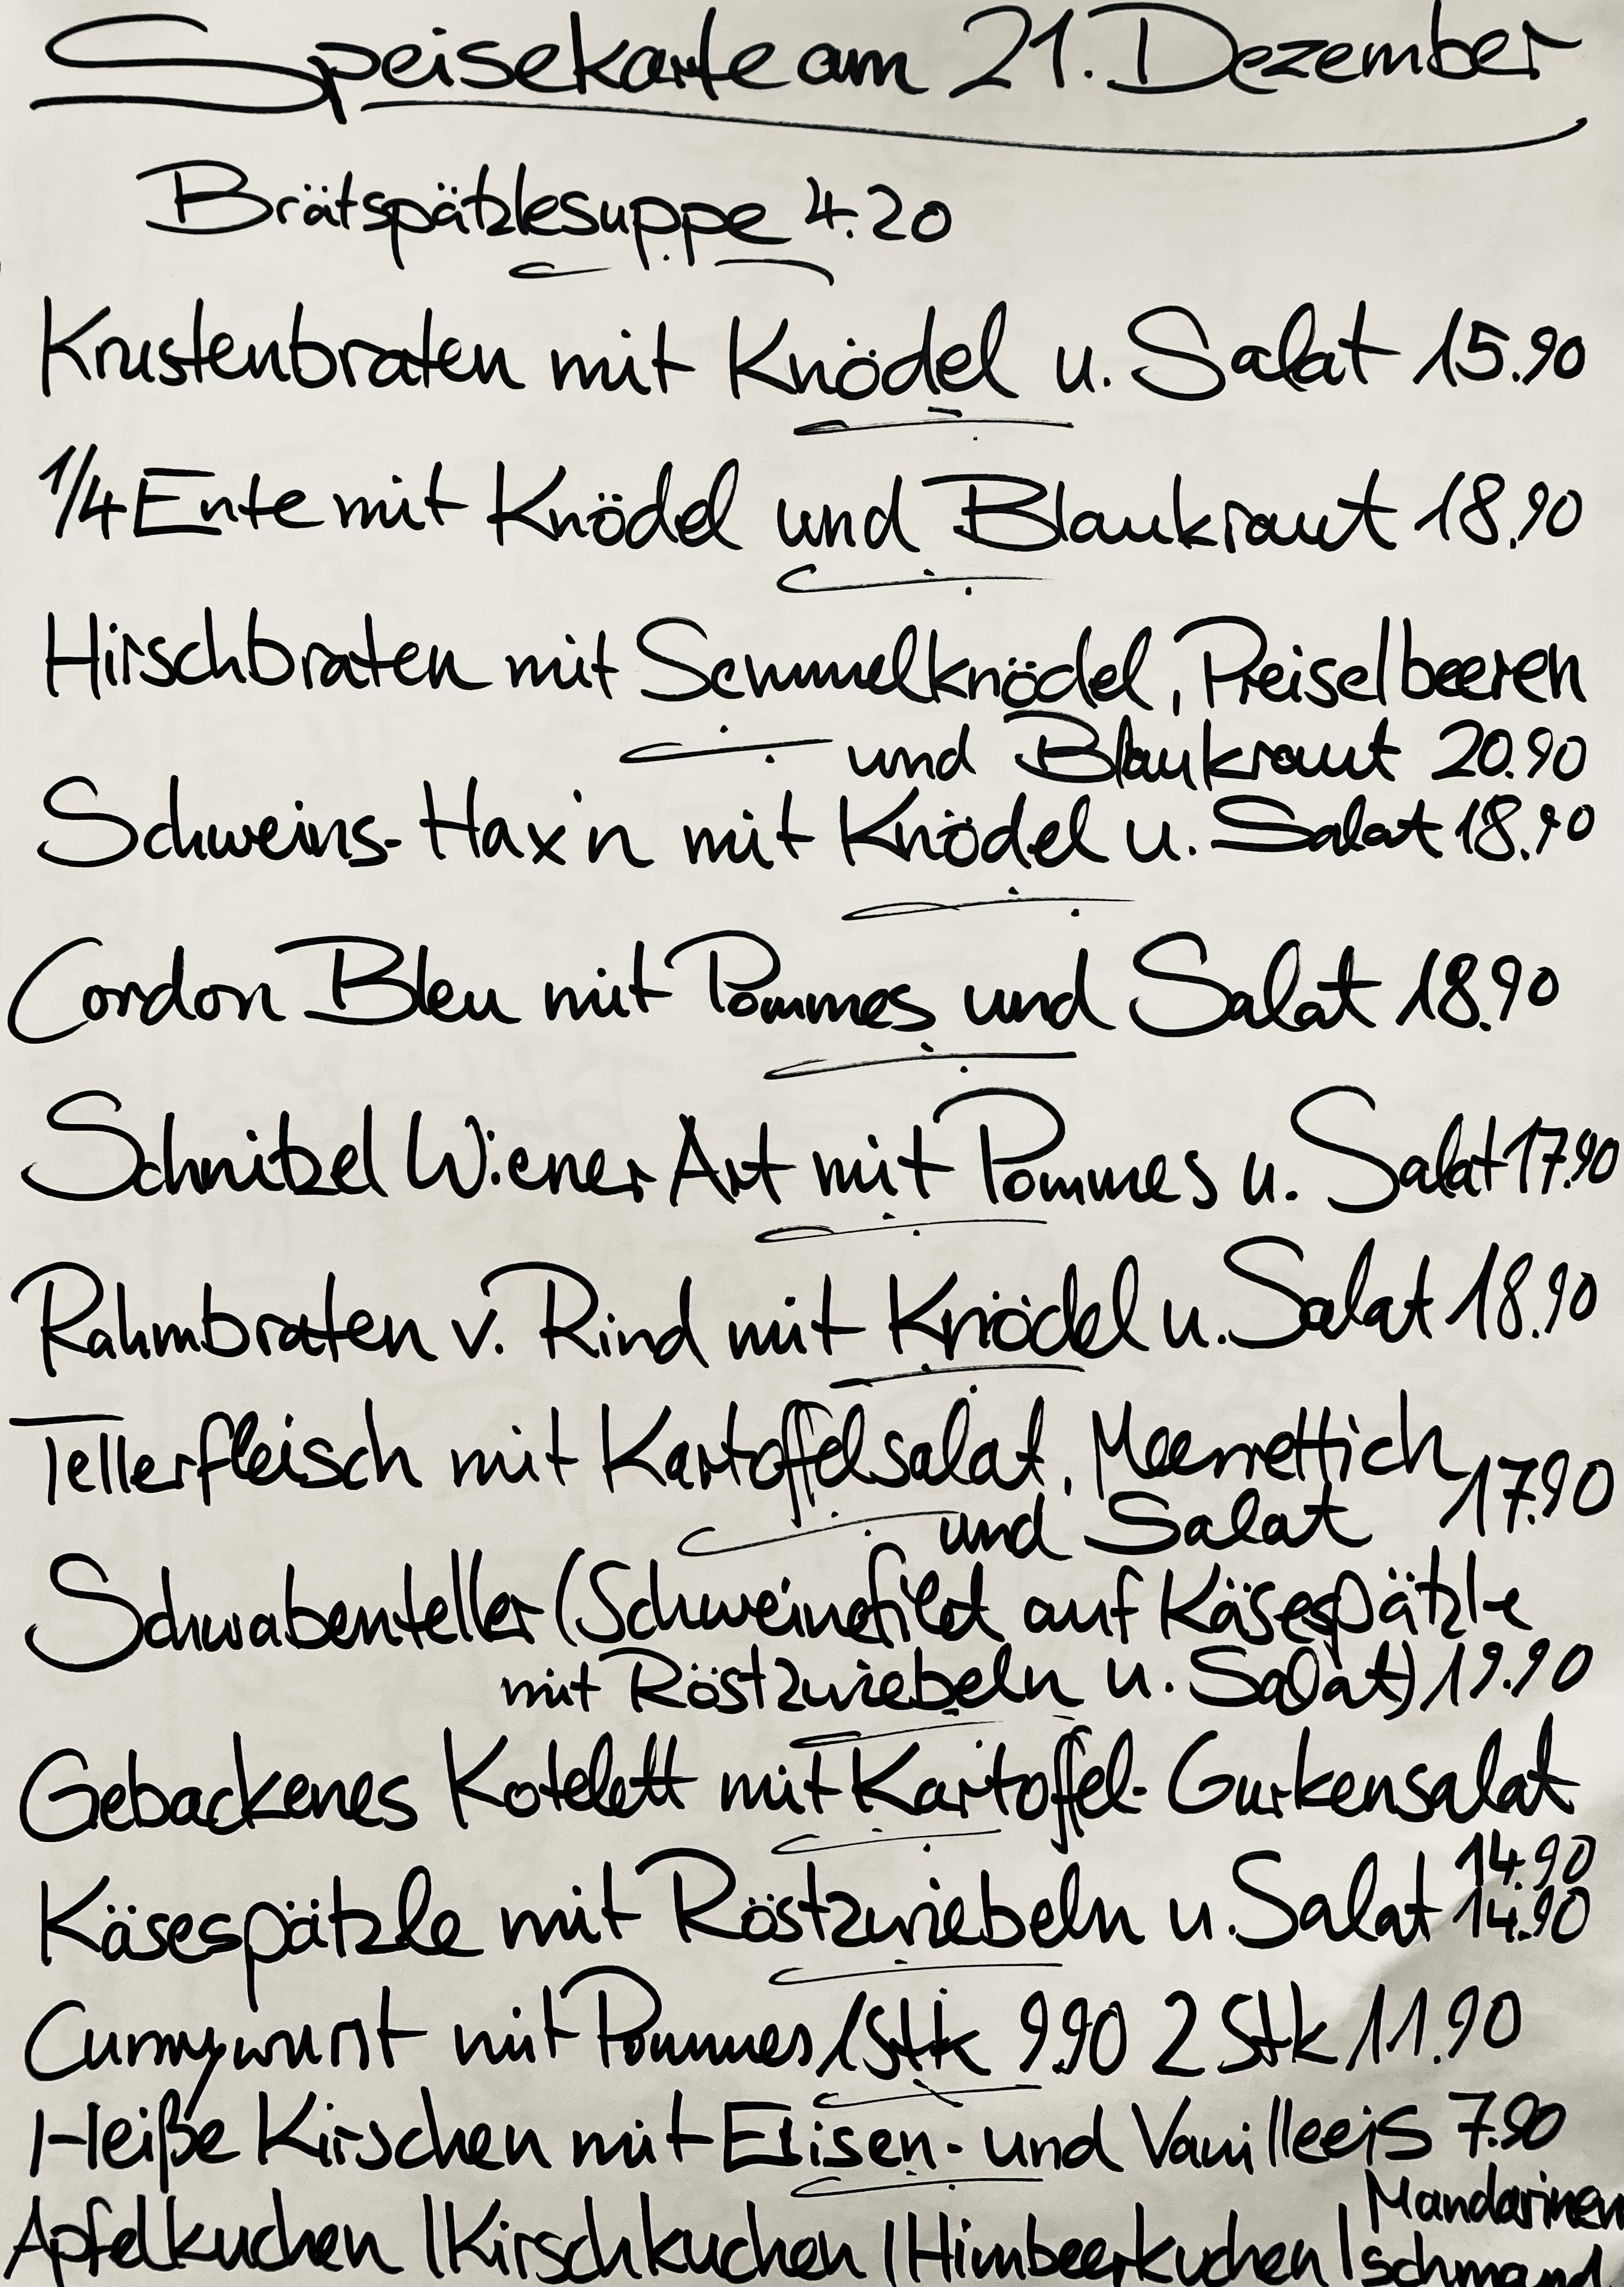 Speisekarte am 21. Dezember
Brätspätzlesuppe 4.20
Krustenbraten mit Knödel u. Salat 15.90
1/4 Ente mit Knödel und Blaukraut 18.90
Hirschbraten mit Semmelknödel, Preiselbeeren
und Blaukraut 20.90
Schweins-Hax'n mit Knödel u. Salat 18.90
Cordon Bleu mit Pommes und Salat 18.90
Schnitzel Wiener Art mit Pommes u. Salat 17.90
Rahmbraten v. Rind mit Knödel u. Salat 18.90
Tellerfleisch mit Kartoffelsalat, Meerrettich
und Salat 17.90
Schwabenteller (Schweinefilet auf Käsespätzle
mit Röstzwiebeln u. Salat) 19.90
Gebackenes Kotelett mit Kartoffel-Gurkensalat
14.90
Käsespätzle mit Röstzwiebeln u. Salat 14.90
Currywurst mit Pommes 1Stk 9.90 2 Stk 11.90
Heiße Kirschen mit Elisen- und Vanilleeis 7.90
Apfelkuchen | Kirschkuchen | Himbeerkuchen | Mandarinen
schmand